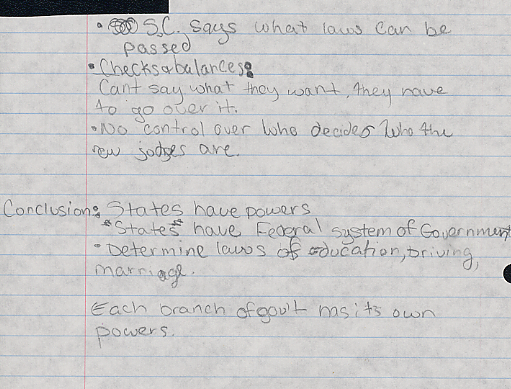 • S.C. says what laws can be
passed
• Checks & balances:
Cant say what they want, they have
to go over it.
• No control over who decides who the
new judges are.
Conclusion: States have powers
*States* have Federal system of Government
• Determine laws of education, Driving,
marriage.
Each branch of gov't has its own
powers.